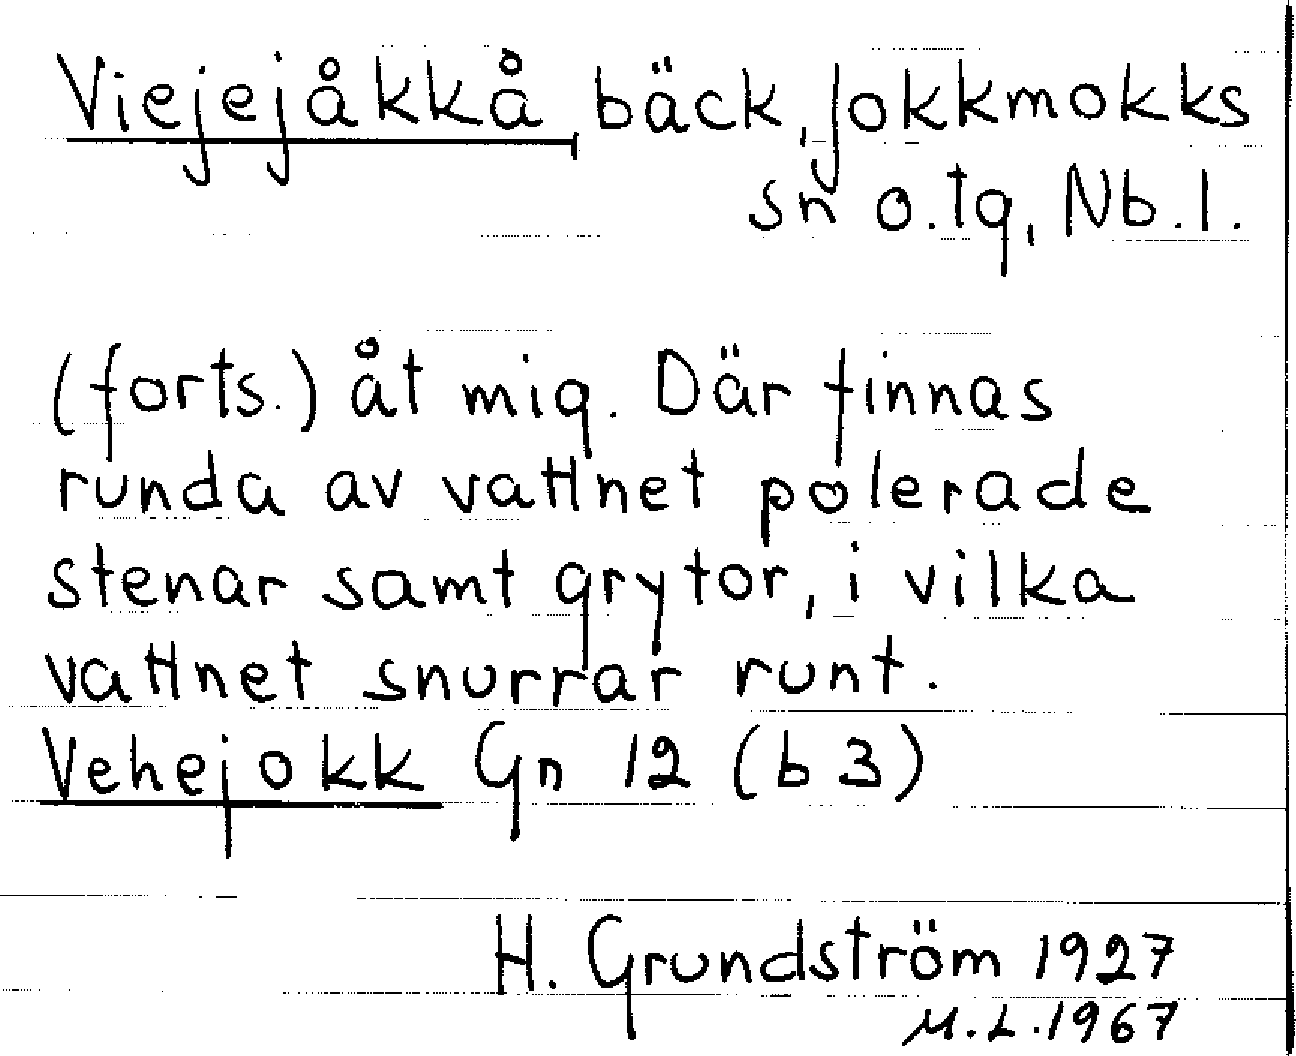 Viejejåkkå bäck, Jokkmokks
sn o.tg, Nb.l.
(forts.) åt mig. Där finnas
runda av vattnet polerade
stenar samt grytor, i vilka
vattnet snurrar runt.
Vehejokk Gn 12 (b 3)
H. Grundström 1927
M.L.1967